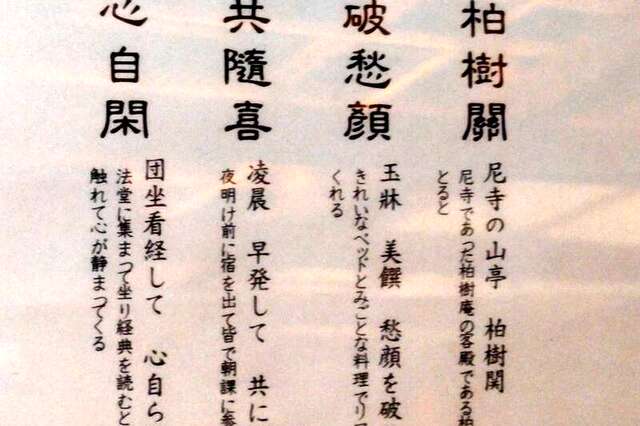 柏樹關
尼寺の山亭 柏樹関
尼寺であった柏樹庵の客殿である柏
とると
破愁顔
玉牀 美饌 愁顔を破
きれいなベッドとみごとな料理でリフ
くれる
共隨喜
凌晨 早発して 共に
夜明け前に宿を出て皆で朝課に参
心自閑
団坐看経して 心自ら
法堂に集まって坐り経典を読むと
触れて心が静まってくる